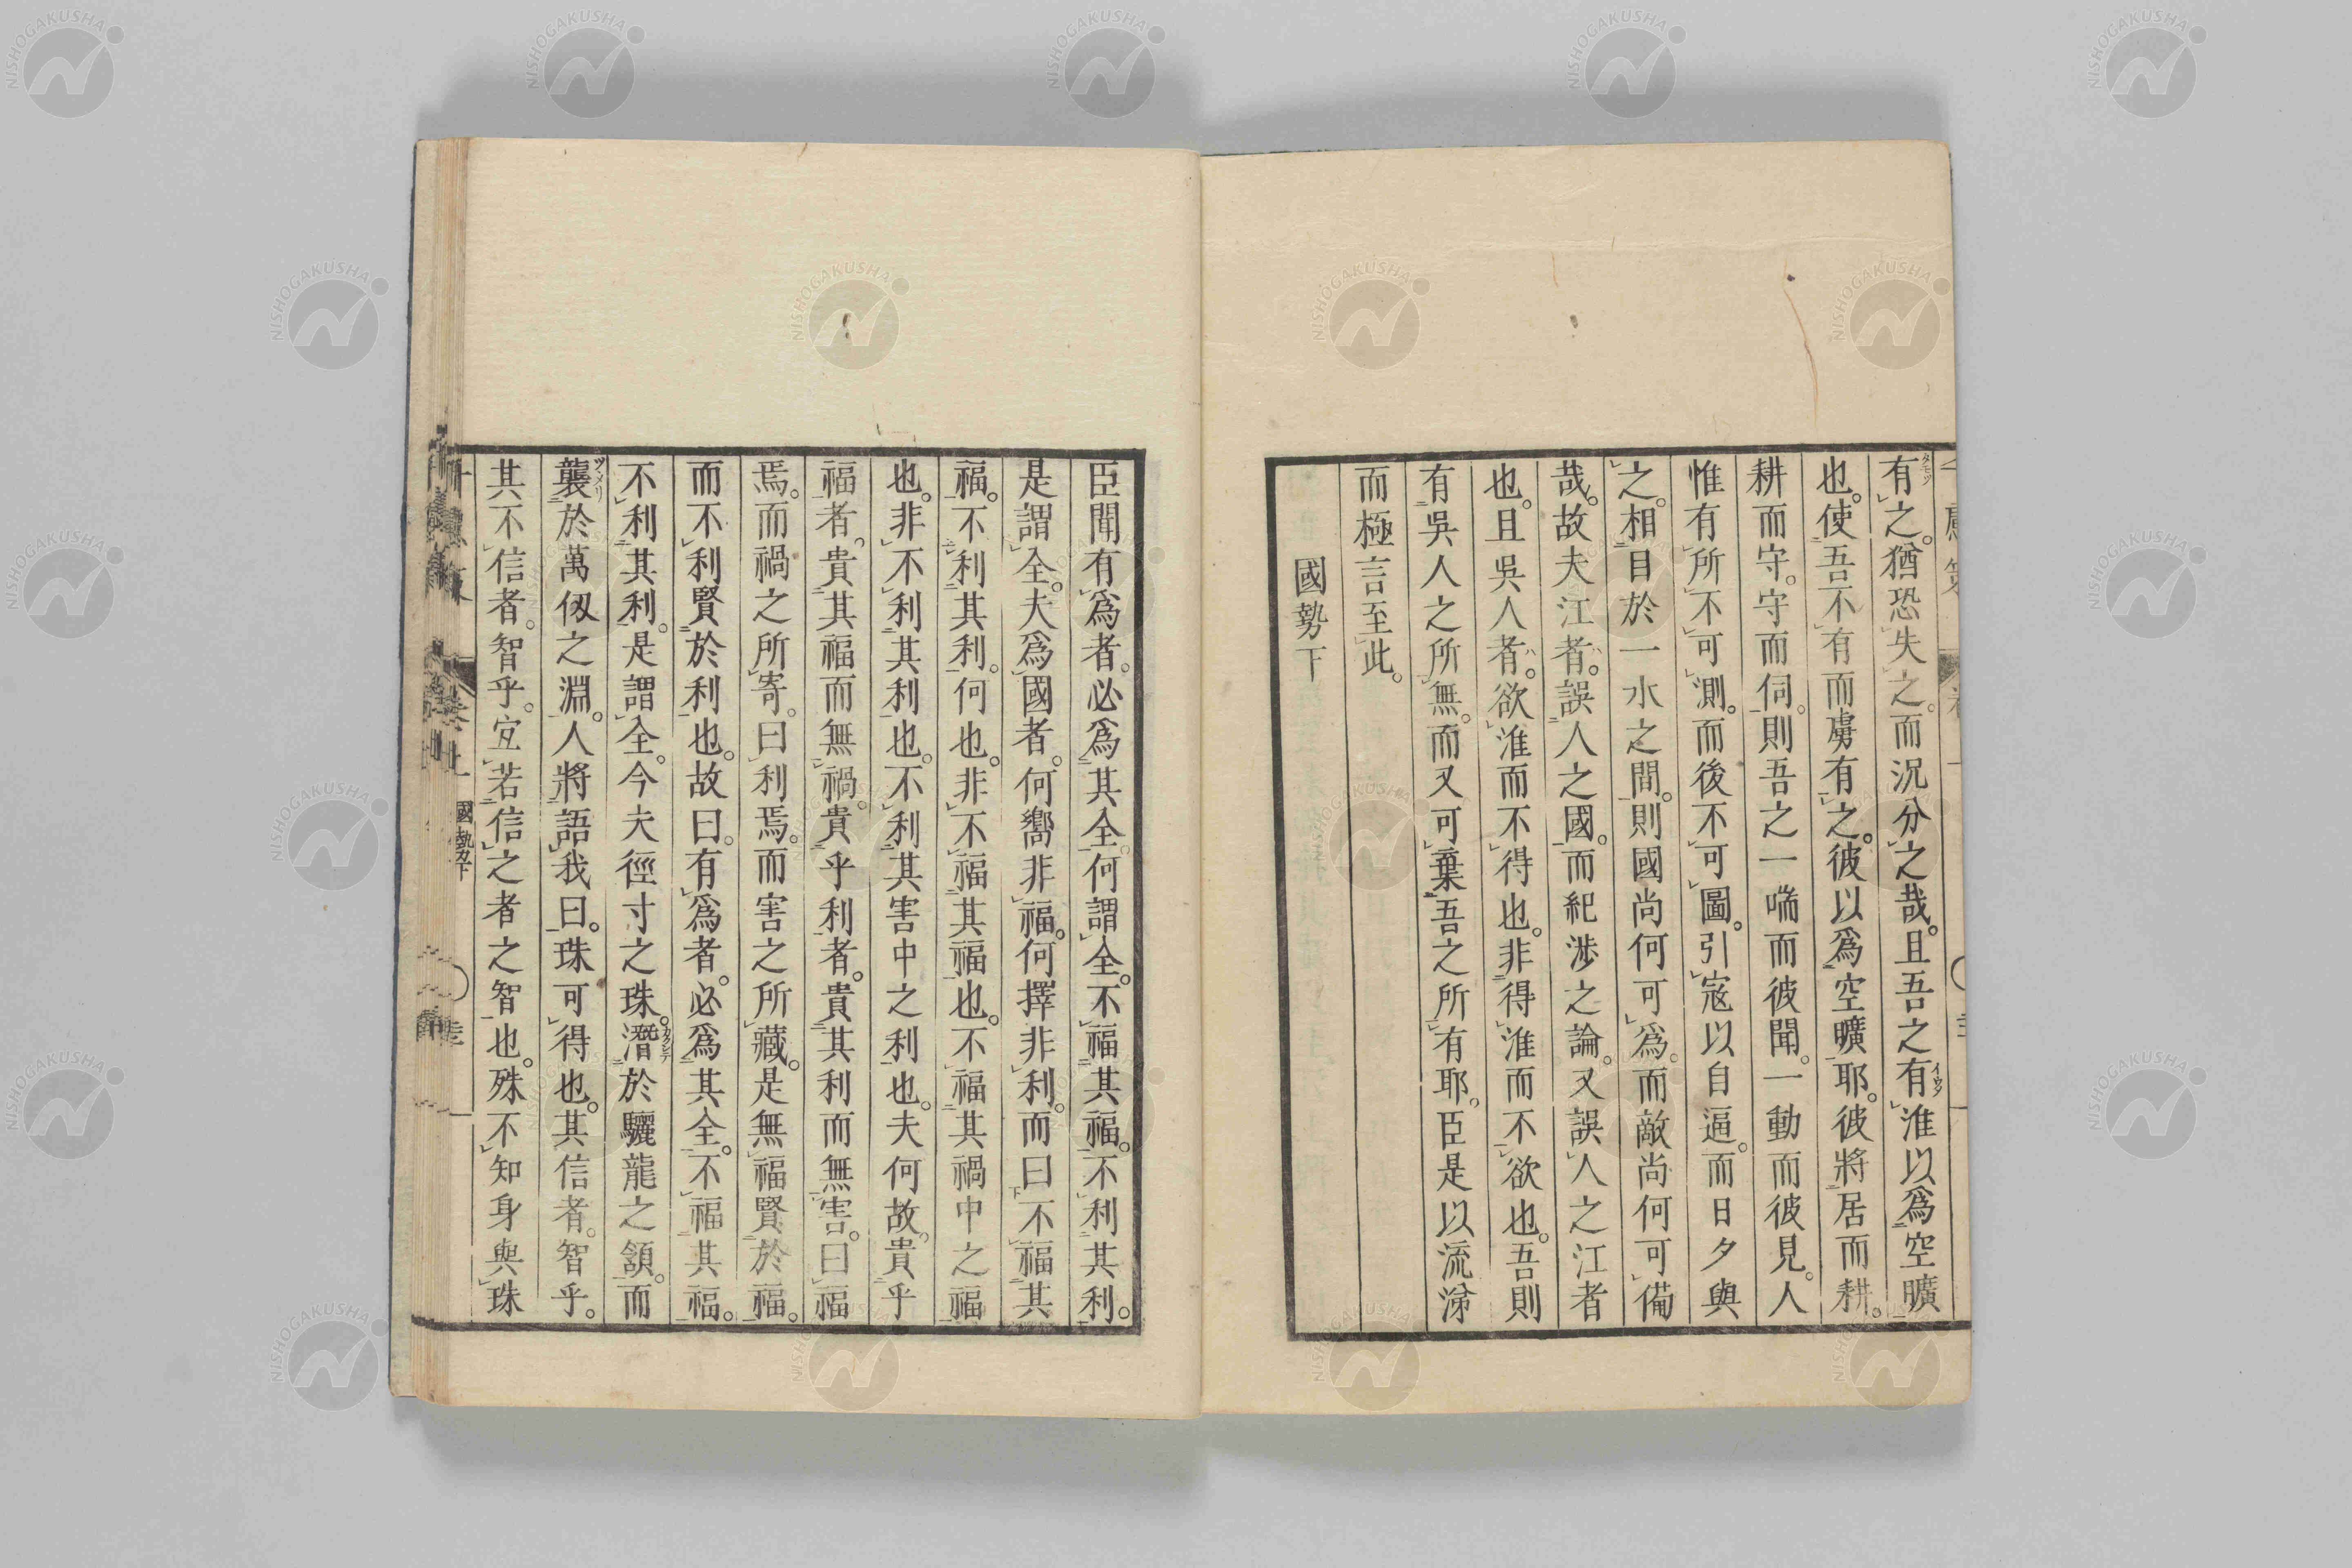 有之。猶恐失之。而况分之哉。且吾之有淮以爲空曠
也。使吾不有而虜有之。彼以爲空曠耶。彼將居而耕。
耕而守。守而伺。則吾之一喘而彼聞。一動而彼見。人
惟有所不可測。而後不可圖。引寇以自逼。而日夕與
之。相目於一水之間。則國尚何可爲。而敵尚何可備
哉。故夫江者。誤人之國。而紀渉之論。又誤人之江者
也。且吳人者。欲淮而不得也。非得淮而不欲也。吾則
有吳人之所無。而又可棄吾之所有耶。臣是以流涕
而極言至此。
國勢下
臣聞有爲者。必爲其全。何謂全。不福其福。不利其利。
是謂全。夫爲國者。何嚮非福。何擇非利。而曰不福其
福。不利其利。何也。非不福其福也。不福其禍中之福
也。非不利其利也。不利其害中之利也。夫何故。貴乎
福者。貴其福而無禍。貴乎利者。貴其利而無害。曰福
焉。而禍之所寄。曰利焉。而害之所藏。是無福賢於福。
而不利賢於利也。故曰。有爲者。必爲其全。不福其福。
不利其利。是謂全。今夫徑寸之珠。潛於驪龍之頷。而
襲於萬仭之淵。人將語我曰。珠可得也。其信者。智乎。
其不信者。智乎。宐若信之者之智也。殊不知身與珠
國勢下
NISHOGAKUSHA